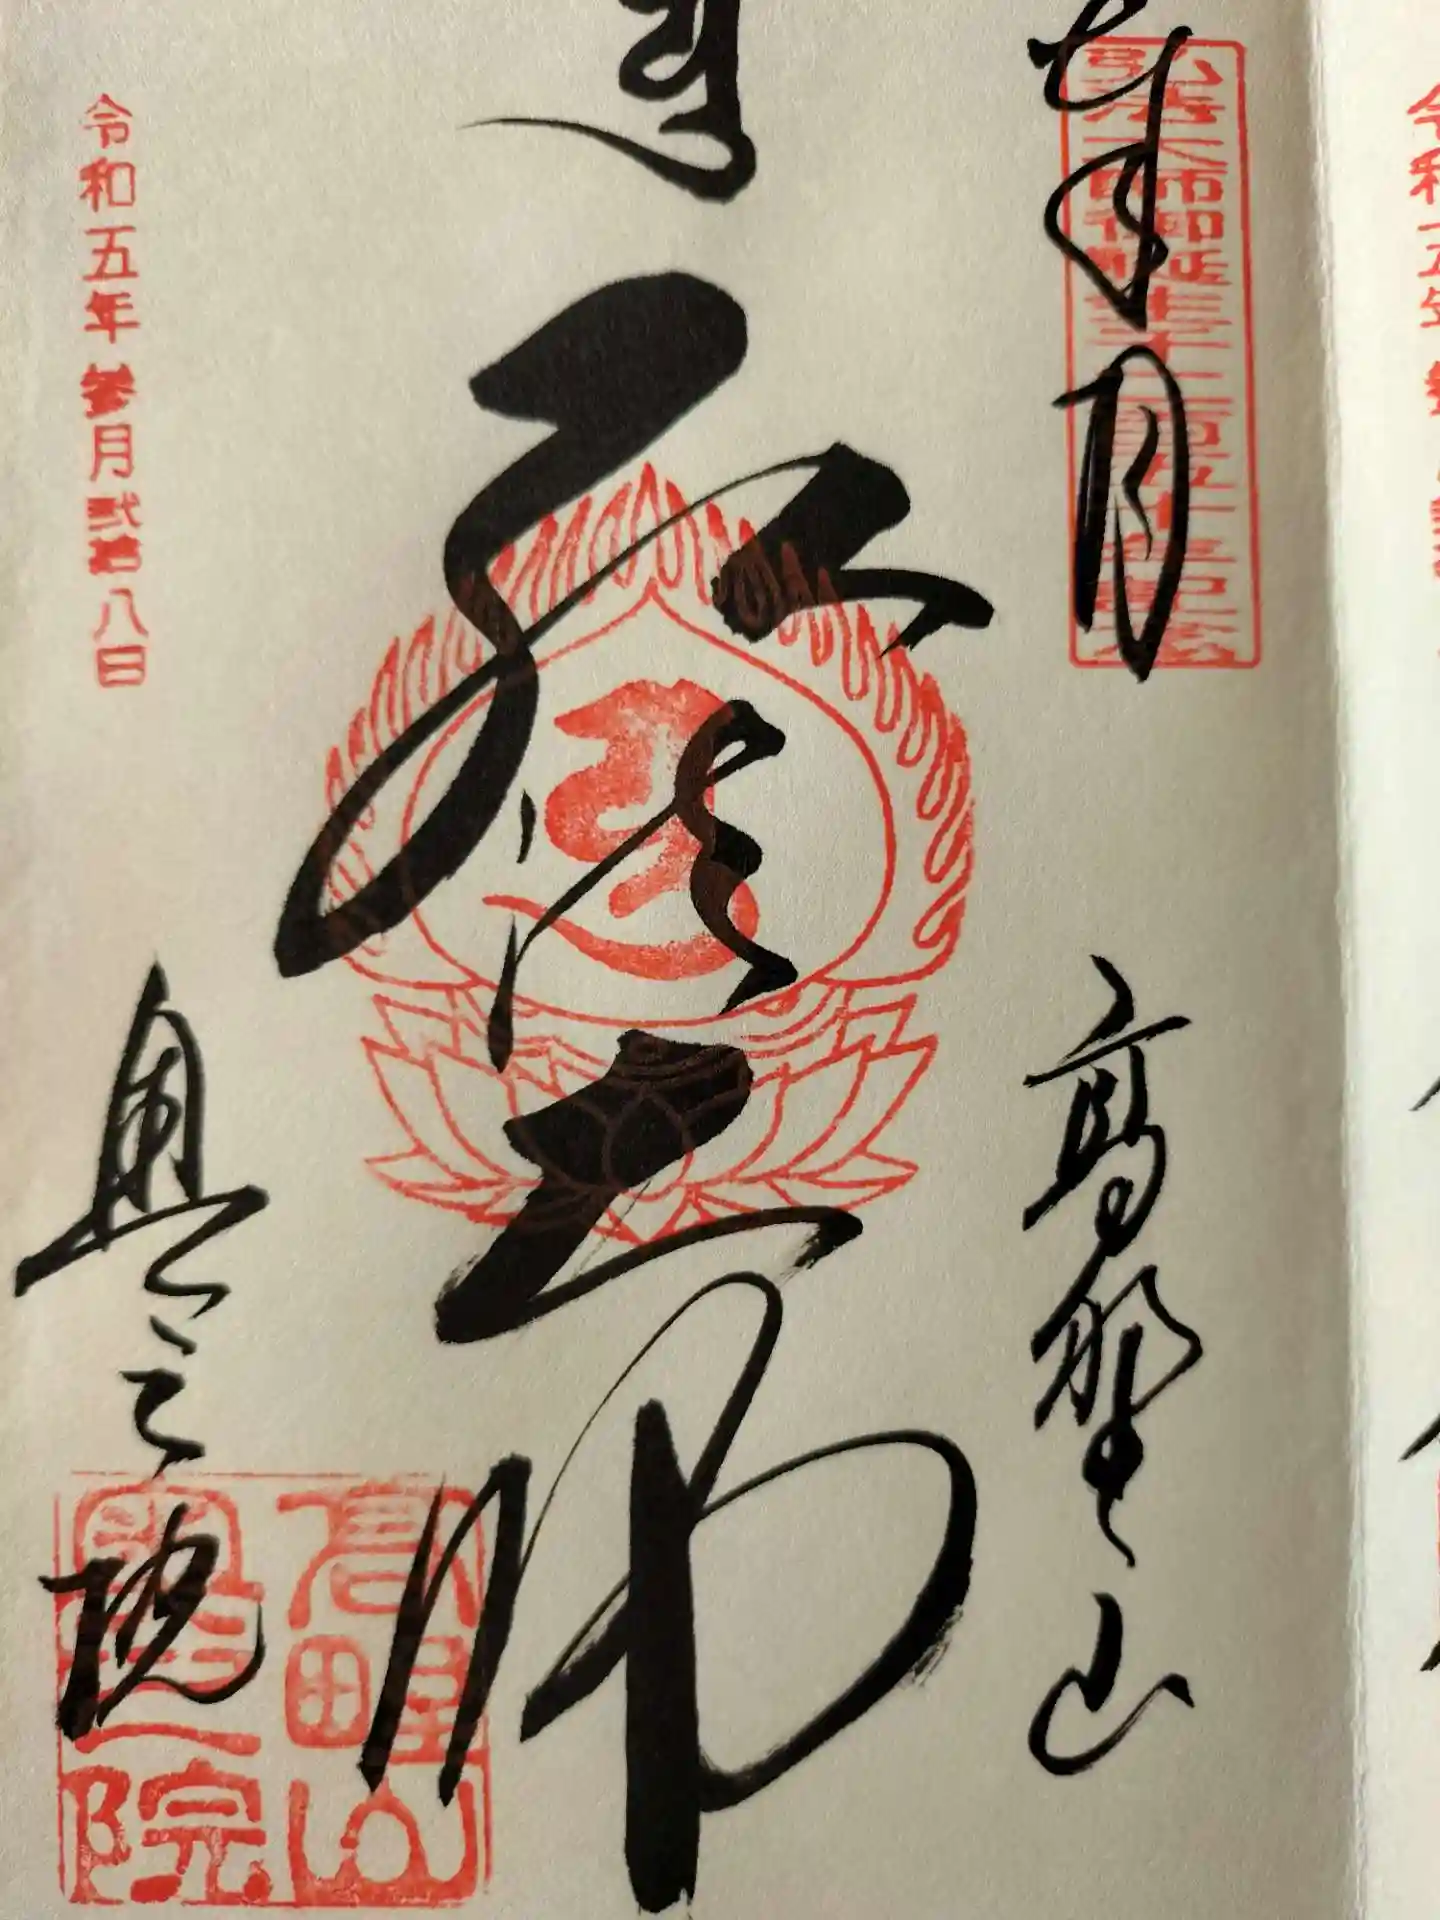 奉拝
弘法大師御誕生千二百五十年記念
高野山
弘法大師
令和五年参月弐拾八日
奥之院
高野山
奥之院